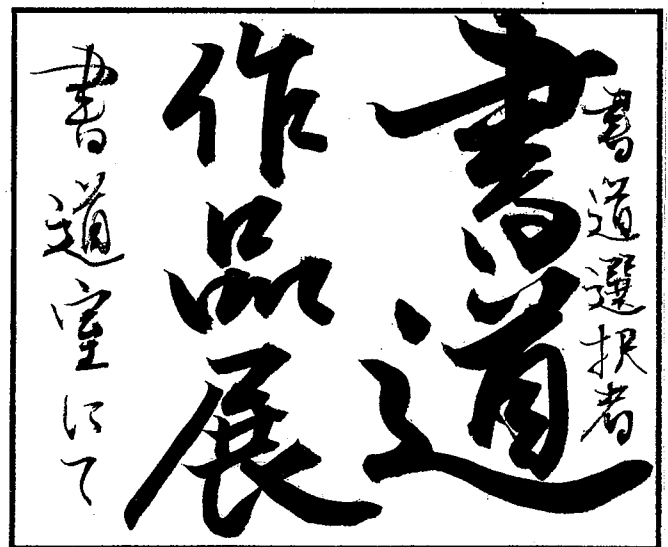 書道選択者
書道
作品展
書道室にて